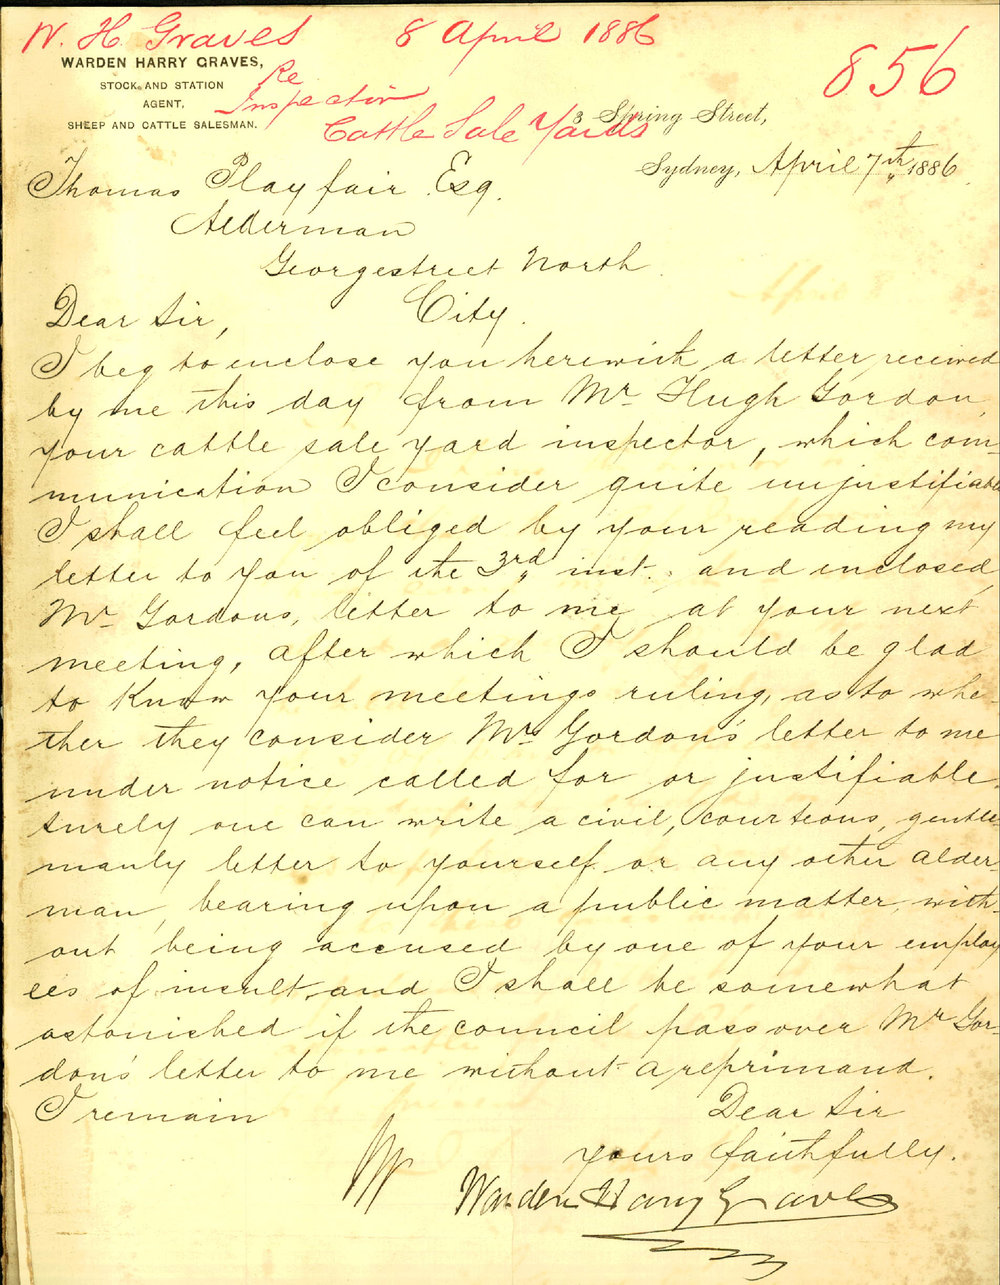 W. H. Graves 8 April 1886
856
WARDEN HARRY GRAVES,
STOCK AND STATION
AGENT,
SHEEP AND CATTLE SALESMAN.
Re
Inspection
Cattle Sale Yards
3 Spring Street,
Sydney, April 7th 1886
Thomas Playfair Esq.
Alderman
Georgestreet North
City.
Dear Sir,
I beg to enclose you herewith a letter received
by me this day from Mr Hugh Gordon,
your cattle sale yard inspector, which com-
munication I consider quite unjustifiable
I shall feel obliged by your reading my
letter to you of the 3rd inst. and enclosed,
Mr Gordons, letter to me at your next
meeting, after which I should be glad
to know your meetings ruling, as to whe-
ther they consider Mr Gordon's letter to me
under notice called for or justifiable.
Surely one can write a civil, courteous, gentle-
manly letter to yourself or any other alder-
man, bearing upon a public matter, with-
out being accused by one of your employ
ees of insult and I shall be somewhat
astonished if the council pass over Mr Gor-
don's letter to me without a reprimand.
I remain
Dear Sir
yours faithfully.
Warden Harry Graves